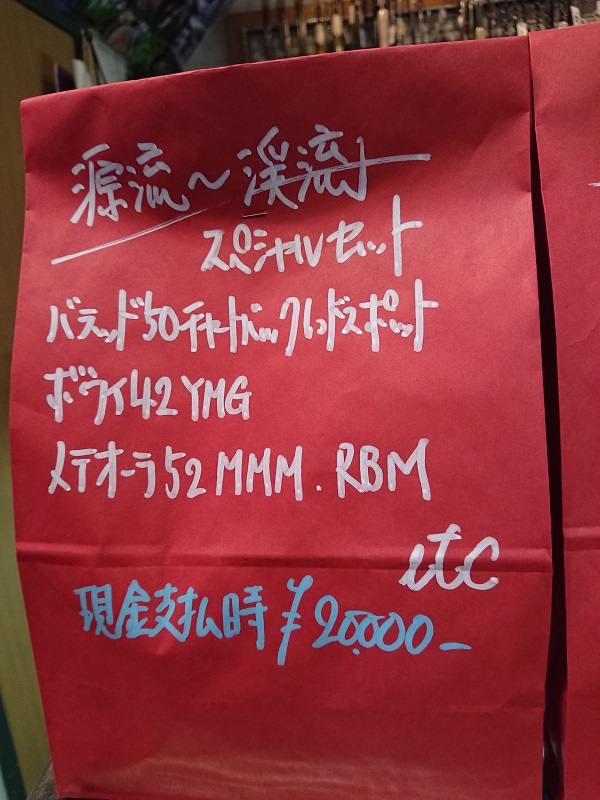 源流～渓流
スペシャルセット
バラッド50チャートバックレッドスポット
ボウイ42YMG
メテオーラ52MMM.RBM
etc
現金支払時¥20,000-